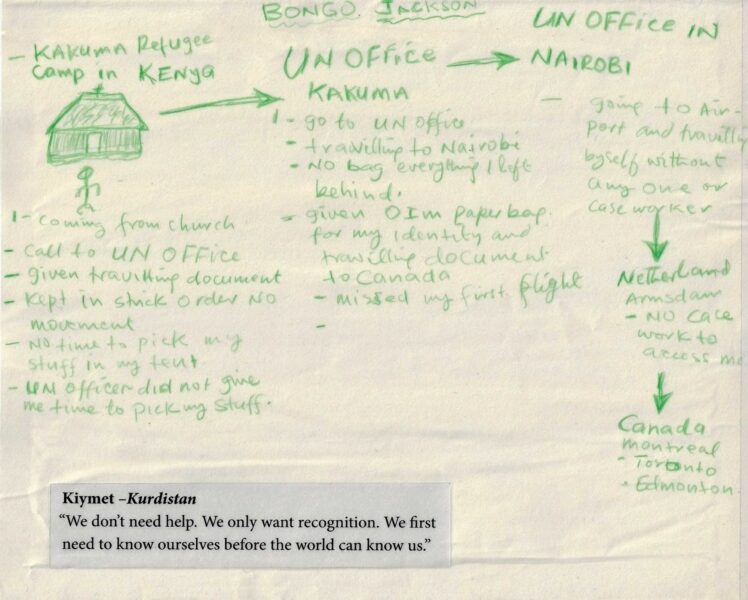 BONGO. JACKSON
- KAKUMA Refugee
Camp in KENYA
1 - coming from church
- Call to UN OFFICE
- given travilting document
- Kept in strick order NO
movement
- NO time to pick my
stuff in my tent
- UN Officer did not give
me time to pick my stuff.
UN OFFICE
KAKUMA
1 - go to UN office
- travilling to Nairobi
- NO bag everything I left
behind.
- given OIM paper bag
for my identity and
travilling document
to Canada
- missed my first flight
-
UN OFFICE IN
NAIROBI
- going to Air-
port and travilling
byself without
any one or
case worker
Netherland
Armsdam
- NO Case
work to
access me
Canada
montreal
- Toronto
- Edmonton
Kiymet –Kurdistan
“We don’t need help. We only want recognition. We first
need to know ourselves before the world can know us.”